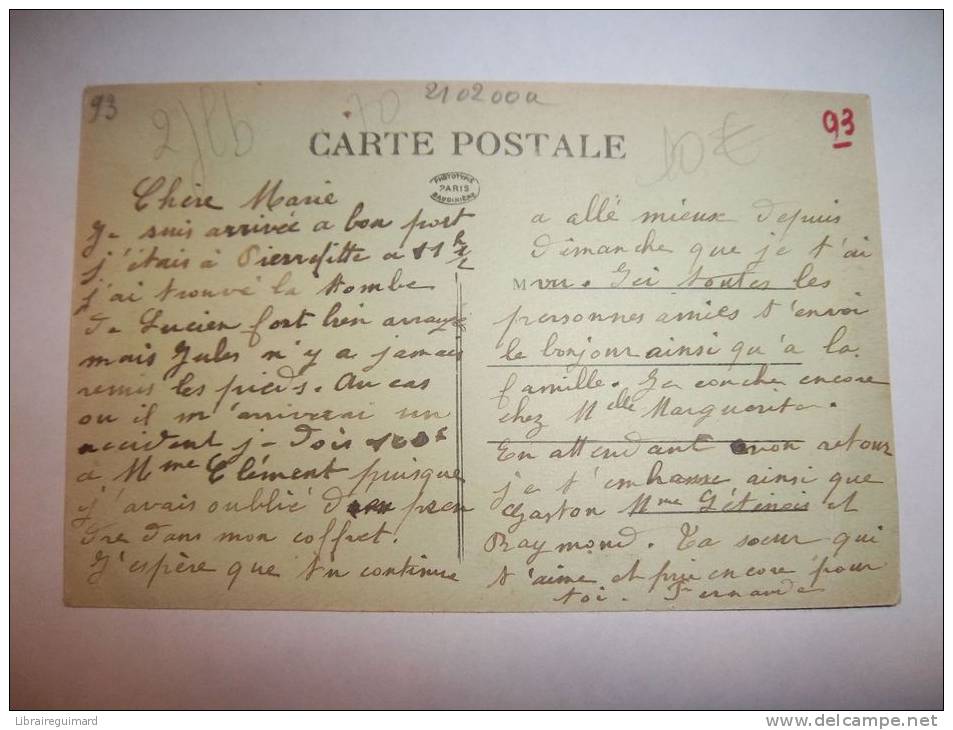 93
2102000a
93
10€
CARTE POSTALE
PHOTOTYPIE
PARIS
BAUDINIÈRE
Chère Marie
Je suis arrivée a bon port
j'étais à Pierrefitte a 11h 1/2
j'ai trouvé la tombe
de Lucien fort bien arrangé
mais Jules n'y a jamais
remis les pieds. Au cas
ou il m'arriverai un
accident je dois 100f
à Mme Clément puisque
j'avais oublié d'en pren
dre dans mon coffret.
J'espère que tu continue
a allé mieux depuis
dimanche que je t'ai
M
vu. Ici toutes les
personnes amies t'envoi
le bonjour ainsi qu'a la
famille. Je couche encore
chez Melle Marguerite.
En attendant mon retour
je t'embrasse ainsi que
Gaston Mme et
Raymond. Ta soeur qui
t'aime et pri encore pour
toi. Fernande
Libraireguimard
www.delcampe.net